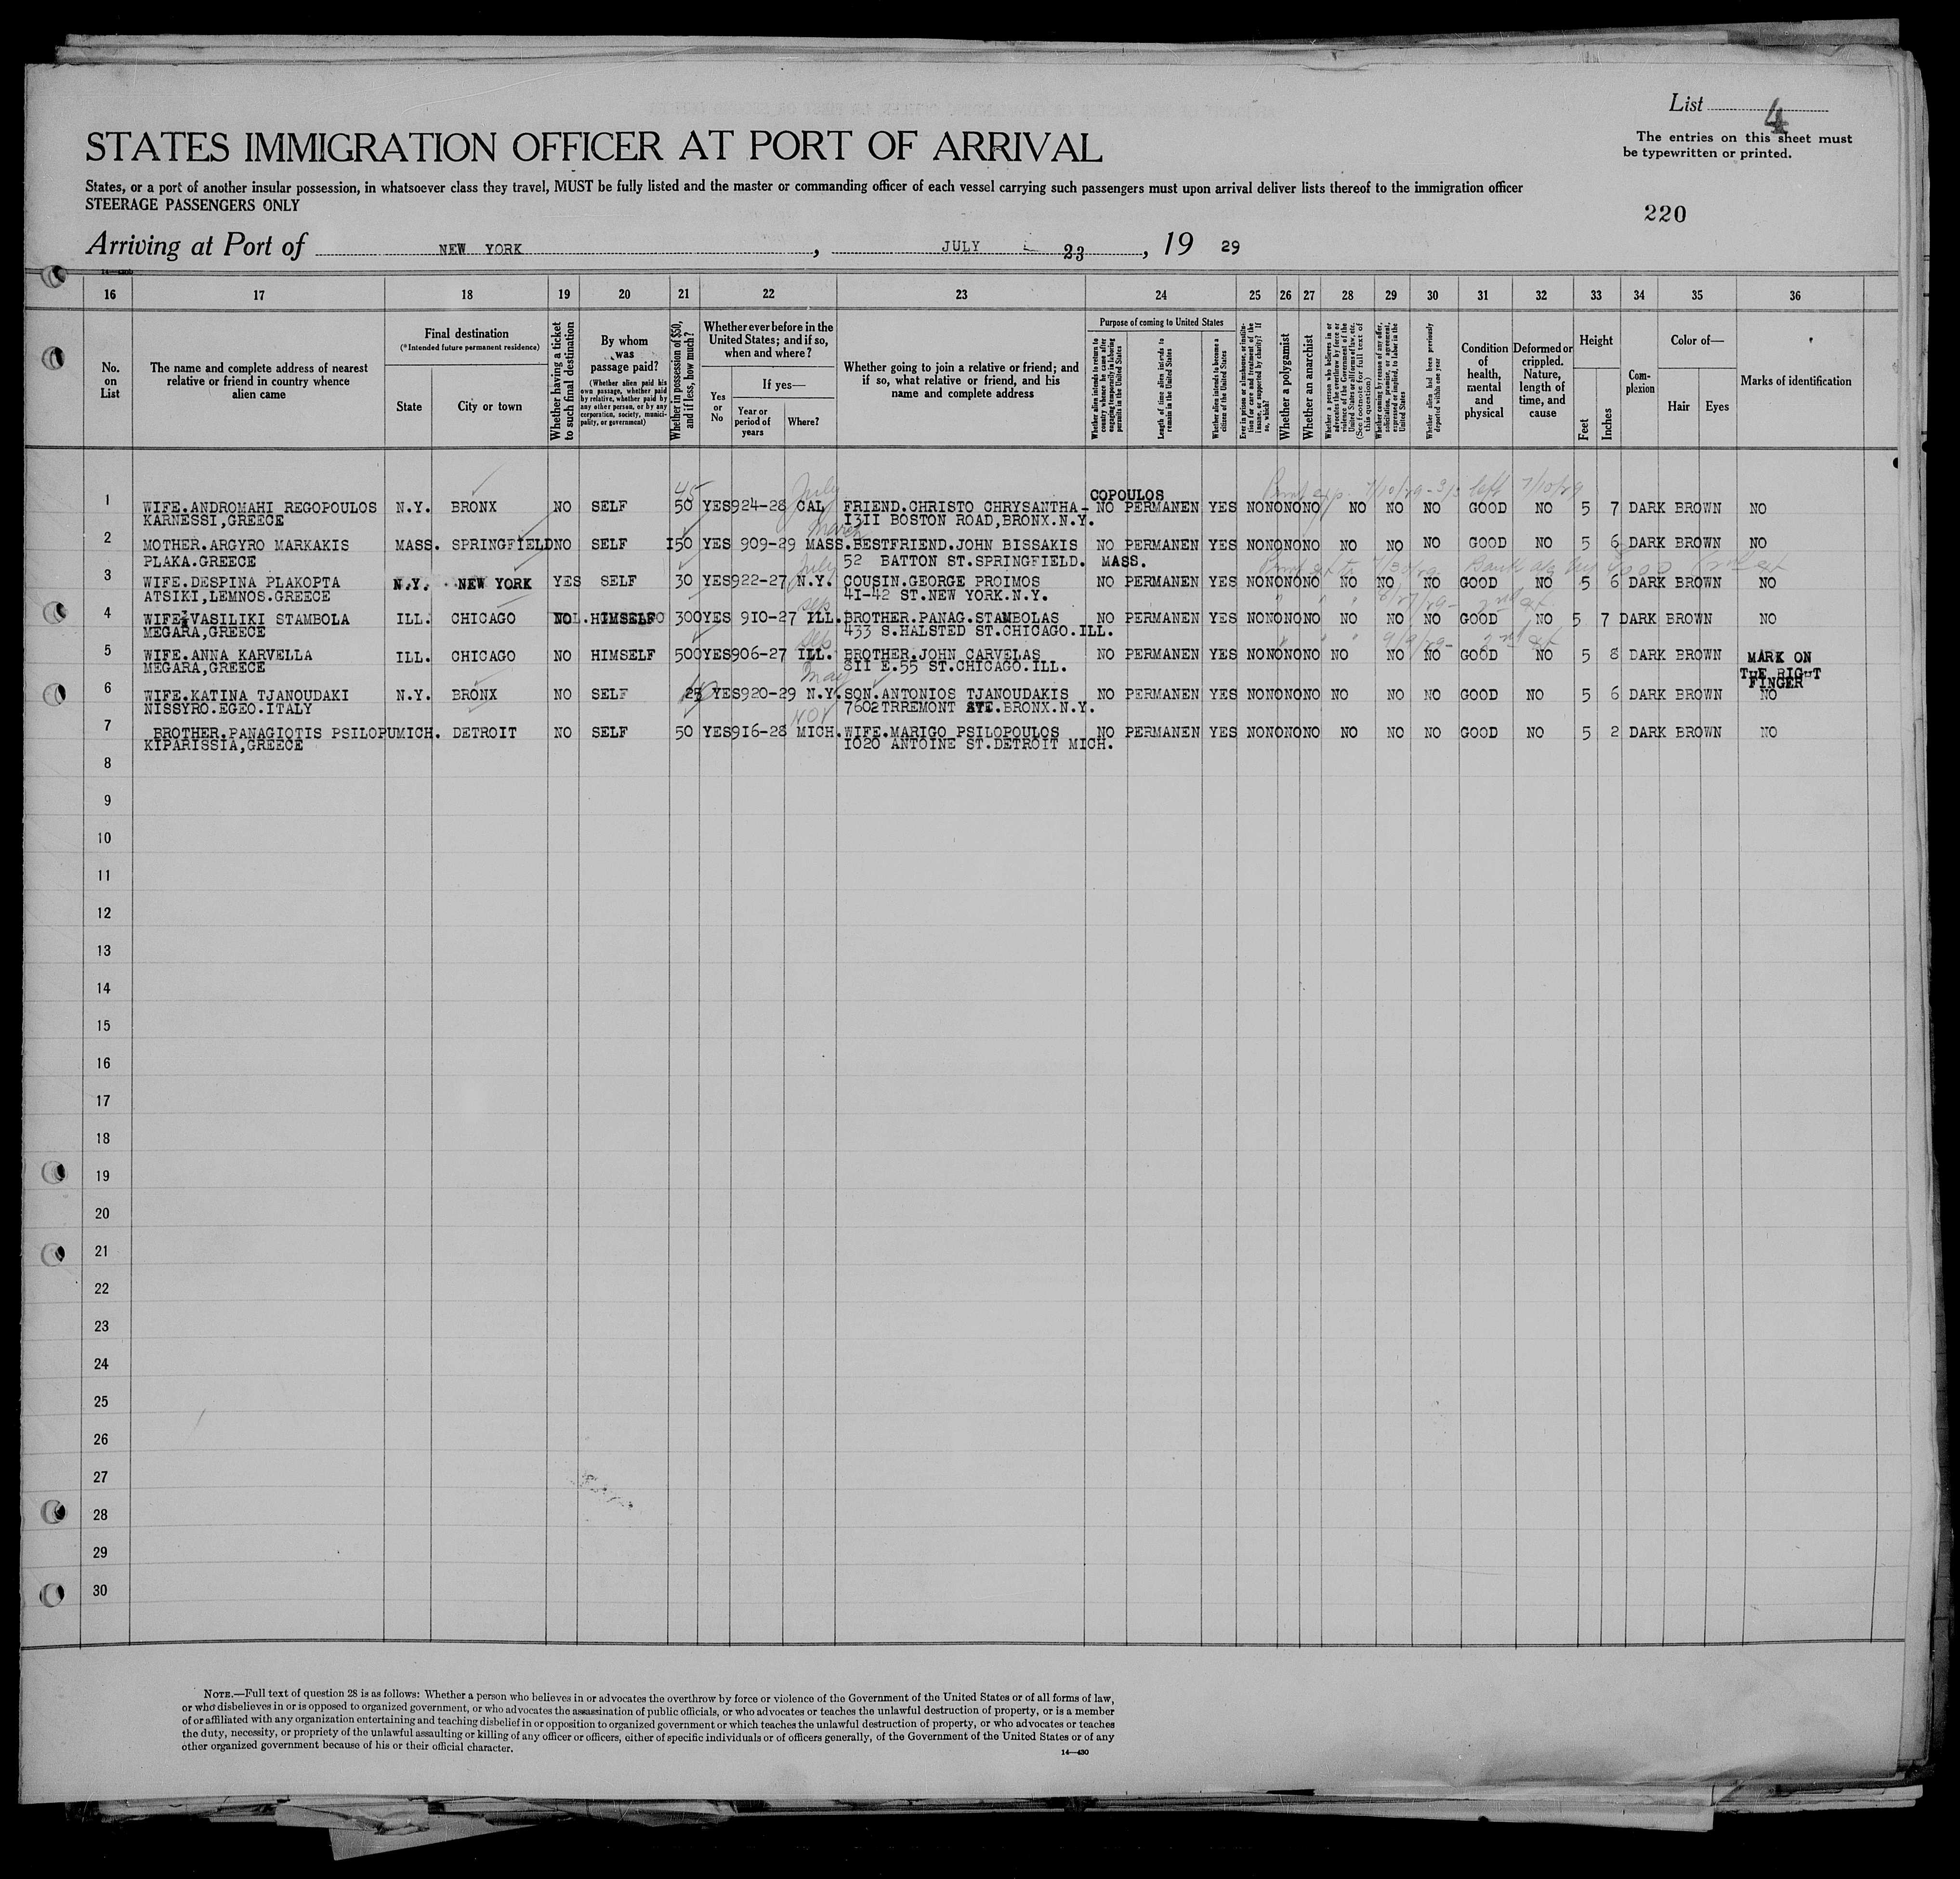 List 4
The entries on this sheet must
be typewritten or printed.
STATES IMMIGRATION OFFICER AT PORT OF ARRIVAL
States, or a port of another insular possession, in whatsoever class they travel, MUST be fully listed and the master or commanding officer of each vessel carrying such passengers must upon arrival deliver lists thereof to the immigration officer
STEERAGE PASSENGERS ONLY
220
Arriving at Port of NEW YORK, JULY 23, 19 29
16 17 18 19 20 21 22 23 24 25 26 27 28 29 30 31 32 33 34 35 36
No. on List
The name and complete address of nearest relative or friend in country whence alien came
Final destination
(*Intended future permanent residence)
State
City or town
Whether having a ticket to such final destination
By whom was passage paid?
(Whether alien paid his own passage, whether paid by relative, whether paid by any other person, or by any corporation, society, municipality, or government)
Whether in possession of $50, and if less, how much?
Whether ever before in the United States; and if so, when and where?
Yes or No
If yes—
Year or period of years
Where?
Whether going to join a relative or friend; and if so, what relative or friend, and his name and complete address
Purpose of coming to United States
Whether alien intends to return to country whence he came after engaging temporarily in laboring pursuits in the United States
Length of time alien intends to remain in the United States
Whether alien intends to become a citizen of the United States
Ever in prison or almshouse, or institution for care and treatment of the insane, or supported by charity? If so, which?
Whether a polygamist
Whether an anarchist
Whether a person who believes in or advocates the overthrow by force or violence of the Government of the United States or all forms of law, etc. (See footnote for full text of this question)
Whether coming by reason of any offer, solicitation, promise, or agreement, expressed or implied, to labor in the United States
Whether alien had been previously deported within one year
Condition of health, mental and physical
Deformed or crippled. Nature, length of time, and cause
Height
Feet
Inches
Complexion
Color of—
Hair
Eyes
Marks of identification
45 July COPOULOS 7/10/29 left 7/10/29
1 WIFE.ANDROMAHI REGOPOULOS N.Y. BRONX NO SELF 50 YES 924-28 CAL FRIEND.CHRISTO CHRYSANTHA- NO PERMANEN YES NO NO NO NO NO NO GOOD NO 5 7 DARK BROWN NO
KARNESSI,GREECE I3II BOSTON ROAD,BRONX.N.Y.
March
2 MOTHER.ARGYRO MARKAKIS MASS. SPRINGFIELD NO SELF I50 YES 909-29 MASS. BESTFRIEND.JOHN BISSAKIS NO PERMANEN YES NO NO NO NO NO NO GOOD NO 5 6 DARK BROWN NO
PLAKA.GREECE July 52 BATTON ST.SPRINGFIELD. MASS.
3 WIFE.DESPINA PLAKOPTA N.Y. NEW YORK YES SELF 30 YES 922-27 N.Y. COUSIN.GEORGE PROIMOS NO PERMANEN YES NO NO NO NO NO NO GOOD NO 5 6 DARK BROWN NO
ATSIKI,LEMNOS.GREECE 4I-42 ST.NEW YORK.N.Y.
Sep
4 WIFE.VASILIKI STAMBOLA ILL. CHICAGO NO HIMSELF 300 YES 910-27 ILL. BROTHER.PANAG.STAMBOLAS NO PERMANEN YES NO NO NO NO NO NO GOOD NO 5 7 DARK BROWN NO
MEGARA,GREECE 433 S.HALSTED ST.CHICAGO.ILL.
Sep
5 WIFE.ANNA KARVELLA ILL. CHICAGO NO HIMSELF 500 YES 906-27 ILL. BROTHER.JOHN CARVELAS NO PERMANEN YES NO NO NO NO NO NO GOOD NO 5 8 DARK BROWN MARK ON THE RIGHT FINGER
MEGARA,GREECE 8II E.55 ST.CHICAGO.ILL.
May
6 WIFE.KATINA TJANOUDAKI N.Y. BRONX NO SELF 25 YES 920-29 N.Y. SON.ANTONIOS TJANOUDAKIS NO PERMANEN YES NO NO NO NO NO NO GOOD NO 5 6 DARK BROWN NO
NISSYRO.EGEO.ITALY 7602TRREMONT AVE.BRONX.N.Y.
NOV
7 BROTHER.PANAGIOTIS PSILOPU MICH. DETROIT NO SELF 50 YES 916-28 MICH. WIFE.MARIGO PSILOPOULOS NO PERMANEN YES NO NO NO NO NO NO GOOD NO 5 2 DARK BROWN NO
KIPARISSIA,GREECE I020 ANTOINE ST.DETROIT MICH.
8
9
10
11
12
13
14
15
16
17
18
19
20
21
22
23
24
25
26
27
28
29
30
NOTE.—Full text of question 28 is as follows: Whether a person who believes in or advocates the overthrow by force or violence of the Government of the United States or of all forms of law,
or who disbelieves in or is opposed to organized government, or who advocates the assassination of public officials, or who advocates or teaches the unlawful destruction of property, or is a member
of or affiliated with any organization entertaining and teaching disbelief in or opposition to organized government or which teaches the unlawful destruction of property, or who advocates or teaches
the duty, necessity, or propriety of the unlawful assaulting or killing of any officer or officers, either of specific individuals or of officers generally, of the Government of the United States or of any
other organized government because of his or their official character.
14—430